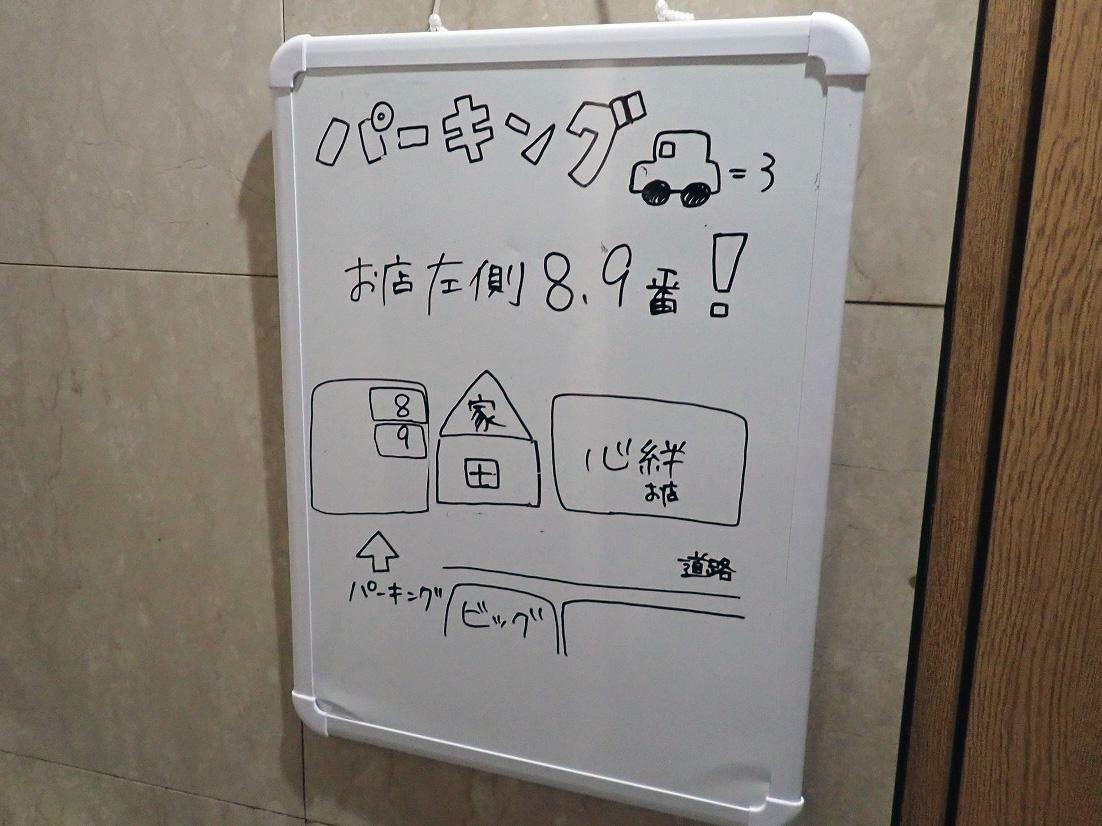 パーキング =3
お店左側8.9番!
8
9
家
心絆
お店
道路
パーキング
ビッグ